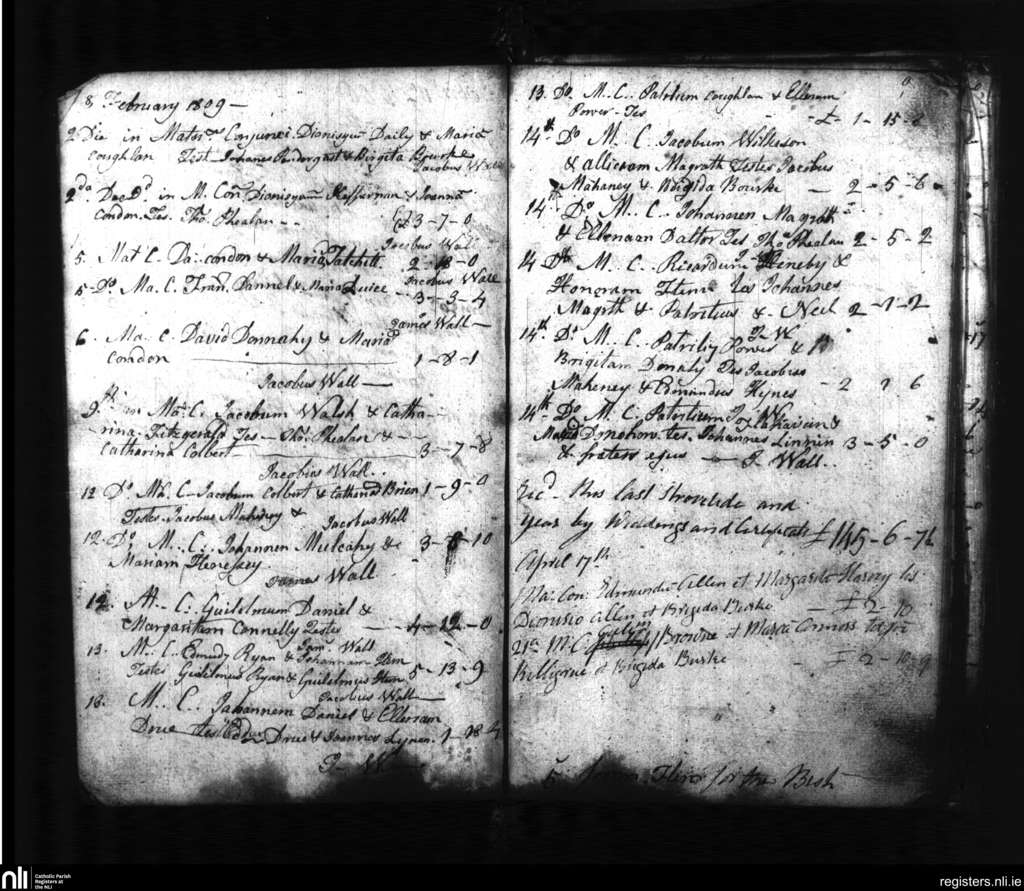 8 February 1809 —
2 Die in Matri Conjunxi Dionisyum Daily & Maria
Coughlan Test Johanes Pendergast & Birgita Bourke
Jacobus Wall
2da Die Do in M. Con Dionisyum Heffernan & Joanna
Condon. Tes. Tho. Phealan - - £3-7-0
Jacobus Wall
5. Mat C. Da: Condon & Maria 2-10-0
Jacobus Wall
5 - Do Ma. C. Fran. Pannel & Maria Quice 3-3-4
James Wall —
6. Ma. C. David Donnahy & Maria
Condon — 1-8-1
Jacobus Wall —
9th Ma. C. Jacobum Walsh & Catha-
rina Fitzgerald Tes - Tho. Phealan &
Catharina Colbert — 3-7-8
Jacobus Wall..
12 Do Ma. C. Jacobum Colbert & Catherina Brien 1-9-0
Testes Jacobus Mahoney &
Jacobus Wall
12. Do M. C. Johannem Mulcahy & 3-8-10
Mariam Henessey
James Wall.
12. M. C. Guilelmum Daniel &
Margaritam Connelly Testes — 4-12-0
Jam. Wall
13. M. C. Edmudy Ryan & Johannam
Testes Guilelmus Ryan & Guilelmus 5-13-9
Jacobus Wall —
13. M. C. Johannem Daniel & Ellenam
Drue Tes Drue & Joannes Lynen. 1-18-4
J - W
13. Do. M. C. Patritium Coughlan & Ellenam
Power - Tes £-1-15-
14th Do M. C. Jacobum Wilkeson
& Alliciam Magrath Testes Jacobus
Mahaney & Brigida Bourke — 2-5-6
14. Do M. C. Johannem Magrath
& Ellenam Dalton Tes Tho. Phealan 2-5-2
14 Do M. C. Ricardum Heneby &
Honoram Tes Johannes
Magrth & Patritius - Neil 2-7-2
J - W
14th. Do M. C. Patritiy Power &
Brigitam Donnly Tes Jacobus
Maheney & Edmundus Hynes - 2 7 6
J - W
14th - Do. M. C. Patritium &
Donohow. tes. Johannes Linnin 3-5-0
& frater ejus — J - Wall..
Recd. this last Shrovetide and
Year by Weddings and Certificats £145-6-7½
April 17th
Ma: Con. Edmundu Allen et Margarita Harney tes.
Dionisio Allen et Brigida Burke — £2-10
21a M. C. Browne et Maria Connors testes
et Brigida Burke - £2-10-9
for the Bish
nli
Catholic Parish
Registers at
the NLI
registers.nli.ie